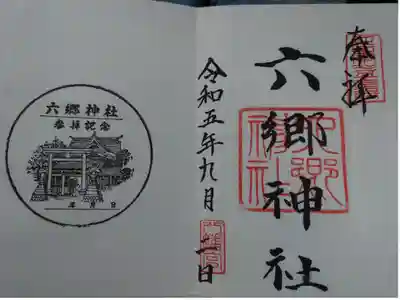 奉拝
六郷神社
令和五年九月二日
六郷神社
参拝記念
年 月 日